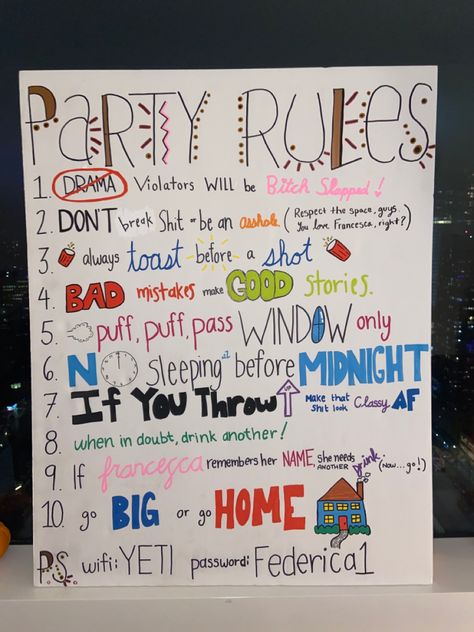 PARTY RULES
1. DRAMA Violators WILL be Bitch Slapped!
2. DON'T break Shit or be an asshole (Respect the space, guys. You love Francesca, right?)
3. always toast before a shot
4. BAD mistakes make GOOD stories.
5. puff, puff, pass WINDOW only
6. NO Sleeping before MIDNIGHT
7. If You Throw ↑ Make that Shit look Classy AF
8. when in doubt, drink another!
9. If francesca remembers her NAME, she needs ANOTHER drink (Now... go!)
10. go BIG or go HOME
P.S. wifi: YETI password: Federica1